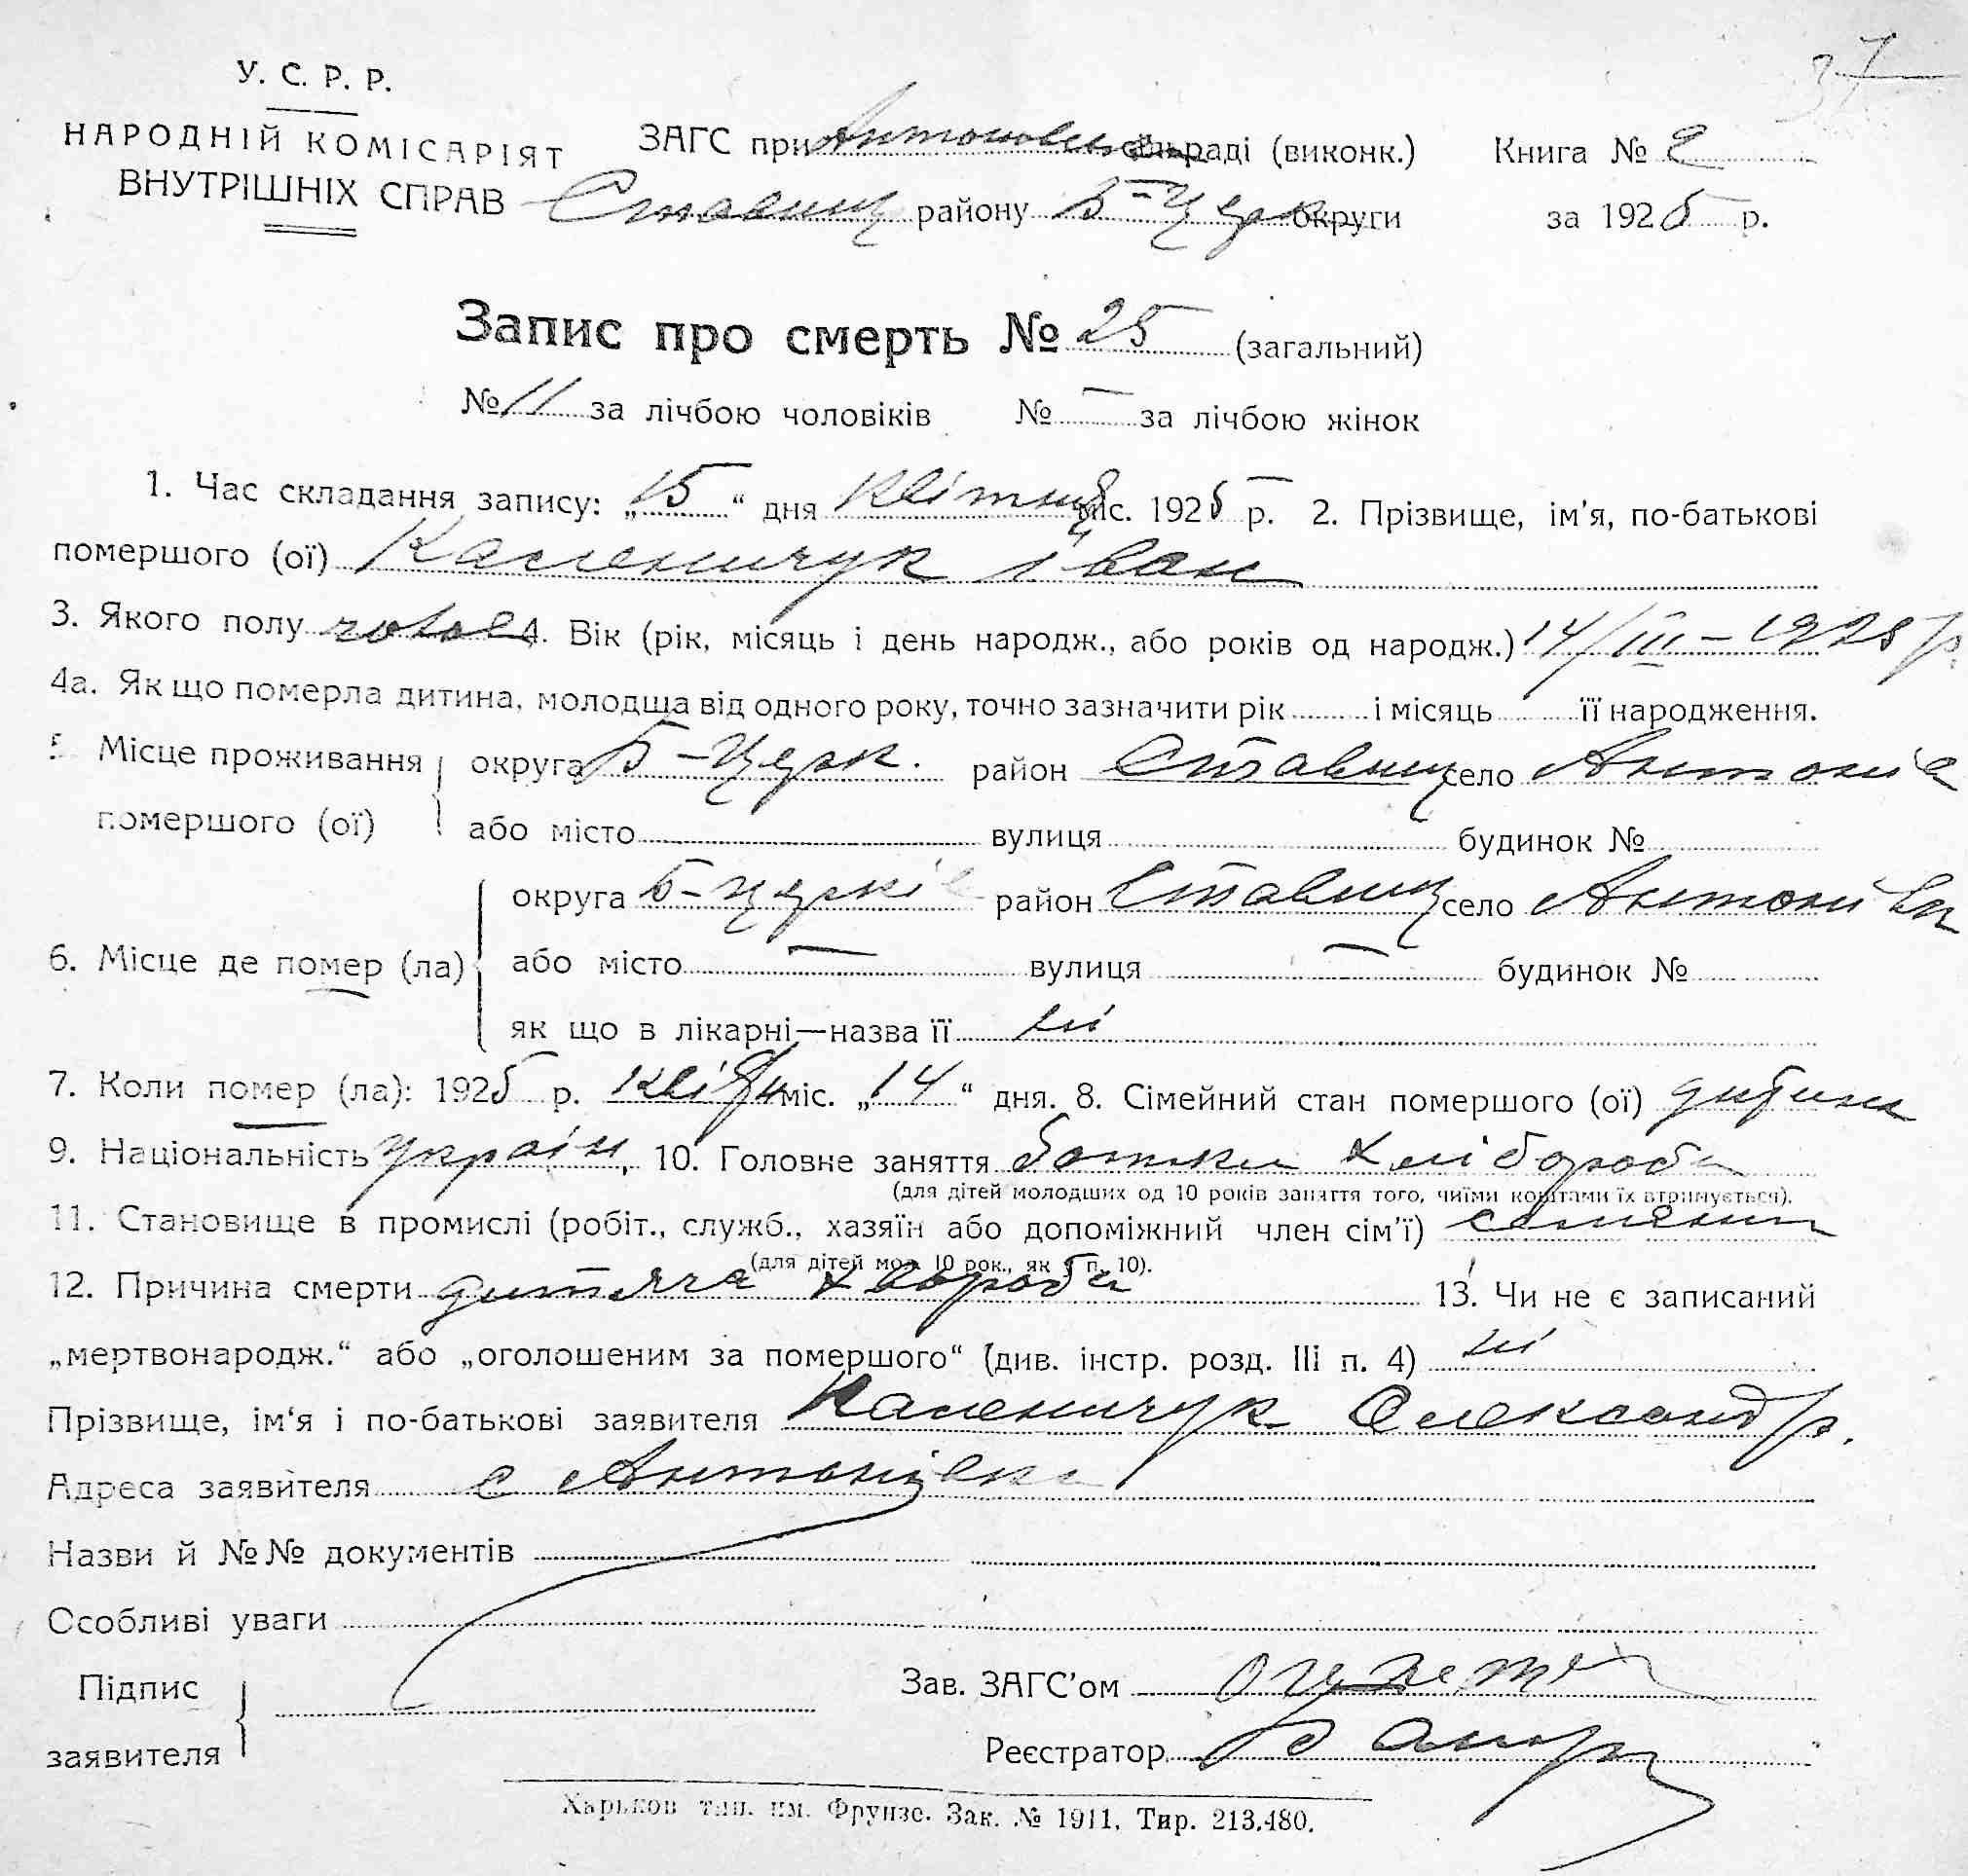 37
У. С. Р. Р.
НАРОДНІЙ КОМІСАРІЯТ
ВНУТРІШНІХ СПРАВ
ЗАГС при сільраді (виконк.) Книга № 2
Ставищ району Б-Церк округи за 1925 р.
Запис про смерть № 25 (загальний)
№ 11 за лічбою чоловіків № — за лічбою жінок
1. Час складання запису: „15“ дня Квітня міс. 1925 р. 2. Прізвище, ім'я, по-батькові
помершого (ої) Каленичук Іван
3. Якого полу чолов 4. Вік (рік, місяць і день народж., або років од народж.) 14/III – 1925 р.
4а. Як що померла дитина, молодща від одного року, точно зазначити рік і місяць її народження.
5 Місце проживання помершого (ої) округа Б-Церк. район Ставищ село Антонів
або місто вулиця будинок №
6. Місце де помер (ла) округа Б-Церків район Ставищ село Антонівк
або місто — вулиця — будинок №
як що в лікарні—назва її ні
7. Коли помер (ла): 1925 р. міс. „14“ дня. 8. Сімейний стан помершого (ої) дитина
9. Національність україн, 10. Головне заняття батьки хлібороби
(для дітей молодших од 10 років заняття того, чиїми коштами їх втримується).
11. Становище в промислі (робіт., служб., хазяїн або допоміжний член сім'ї) селянин
(для дітей мол. 10 рок., як в п. 10).
12. Причина смерти дитяча хвороба 13. Чи не є записаний
„мертвонародж.“ або „оголошеним за помершого“ (див. інстр. розд. III п. 4) ні
Прізвище, ім'я і по-батькові заявителя Каленичук Олександр.
Адреса заявителя с Антонівка
Назви й №№ документів
Особливі уваги
Підпис заявителя
Зав. ЗАГС'ом
Реєстратор
Харьков тип. им. Фрунзе. Зак. № 1911. Тир. 213.480.